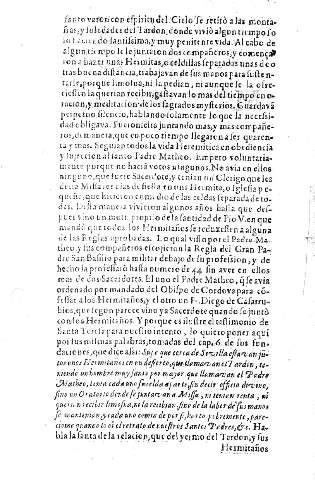 santo varon con espiritu del Cielo se retirò a las monta-
ñas, y soledades del Tardon, donde vivió algun tiempo so
lo haziendo santissima, y muy penitente vida. Al cabo de
algun tiempo se le juntaron dos compañeros, y comença
ron a hazer unas Hermitas, o celdillas separadas unas de o
tras buena distancia, trabajavan de sus manos para susten-
tarse, porque limosna, ni la pedian, ni aunque se la ofre-
ciessen la querian recibir, gastavan lo mas del tiempo en o-
racion, y meditacion de los sagrados mysterios. Guardavã
perpetuo silencio, hablando solamente lo que la necessi-
dad obligava. Fueronseles juntando mas, y mas compañe-
ros, de manera, que en poco tiempo llegaron a ser quaren-
ta y mas. Seguian todos la vida Heremitica en obediencia
y sujeccion al santo Padre Matheo. Empero voluntaria-
mente porque no hacian votos ningunos. No avia en ellos
ninguno, que fuesse Sacerdote, y tenian un Clerigo que les
dezia Missa los dias de fiesta en una Hermita, o Iglesia pe-
queña, que hizieron como una de las celdas separada de to-
das. Desta manera vivieron algunos años hasta que des-
pues vino un motu proprio de la santidad de Pio V. en que
mandó que todos los Hermitaños se reduxessen a alguna
de las Reglas aprobadas. Lo qual visto por el Padre Ma-
theo, y sus compañeros escogieron la Regla del Gran Pa-
dre San Basilio para militar debajo de su profession, y de
hecho la professarõ hasta numero de 44. sin aver en ellos
mas de dos Sacerdotes. El uno el Padre Matheo, q̃ se avia
ordenado por mandado del Obispo de Cordova para cõ-
fessar a los Hermitaños, y el otro un F. Diego de Casarru-
bios, que segun parece vino ya Sacerdote quando se juntò
con los Hermitaños. Y porque es ilustre el testimonio de
Santa Teresa para nuestro intento, lo quiero poner aqui
por sus mismas palabras, tomadas del cap. 6. de sus fun-
daciones, que dice assi: Supe que cerca de Sevilla estavan jũ-
tos unos Hermitaños en un desierto, que llamavan el Tardon, te-
niendo un hombre muy santo por mayor que llamavan el Padre
Matheo, tenia cada uno su celda aparte, sin decir oficio divino,
sino un Oratorio donde se juntavan a Missa, ni tenian renta, ni
querian recibir limosna, ni la recibian, sino de la labor de sus manos
se mantenian, y cada uno comia de por sí, harto pobremente, pare-
ciome quando lo oí el retrato de nuestros Santos Padres, &c. Ha-
bla la santa de la relacion, que del yermo del Tardon, y sus
Hermitaños